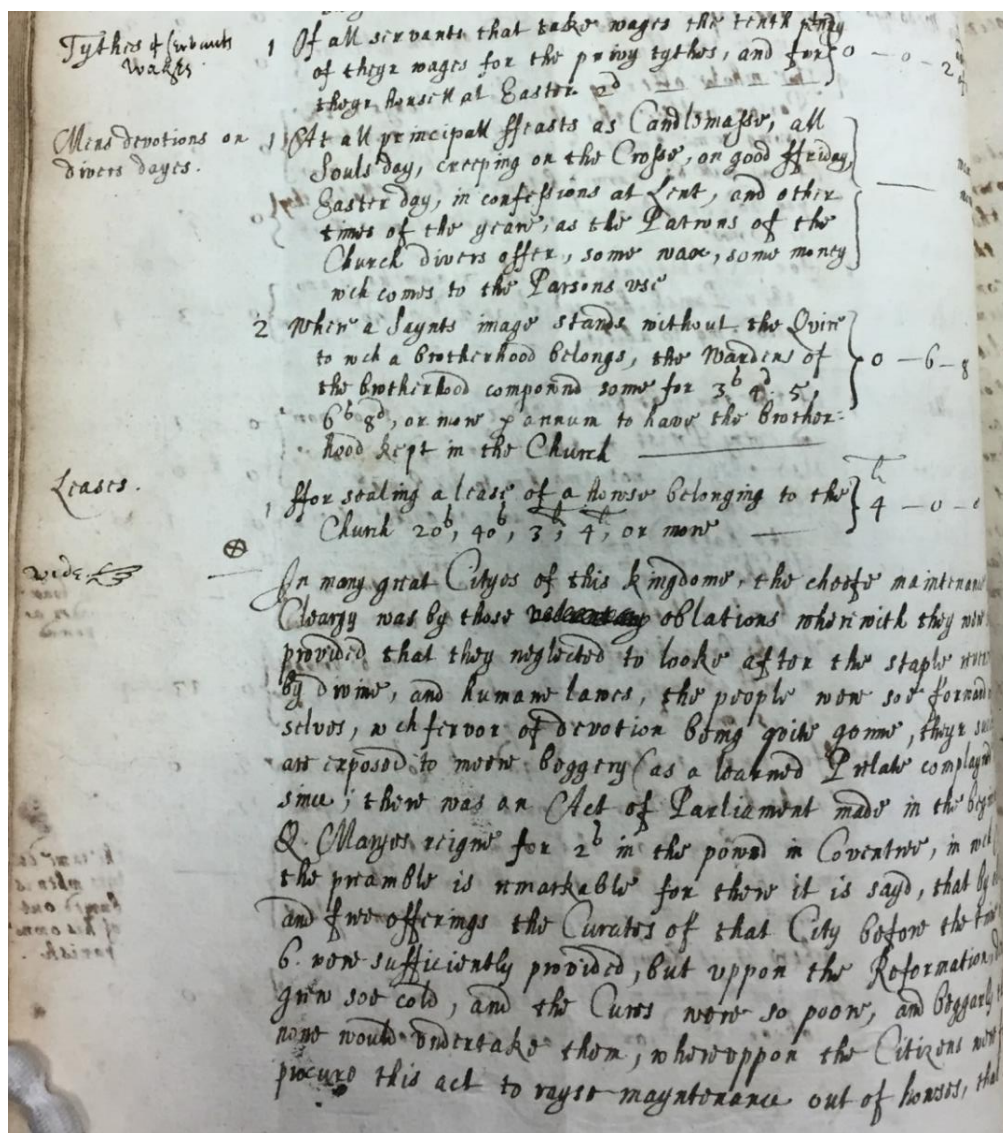 Tythes of Servants
wages.
1 Of all servants that take wages the tenth penny
of theyr wages for the privy tythes, and for 0 – 0 – 2
theyr howsell at Easter 2d
Mens devotions on
divers dayes.
1 At all principall ffeasts as Candlemasse, all
Souls day, creeping on the Crosse, on good ffriday,
Easter day, in confessions at Lent, and other
times of the yeare, as the Patrons of the
Church divers offer, some wax, some money
wch comes to the Parsons vse
2 When a Saynts image stands without the Qvire
to wch a brotherhood belongs, the Wardens of 0 – 6 – 8
the brotherhood compownd some for 3s 4d. 5s,
6s 8d, or more p annum to have the brother:
hood kept in the Church
Leases.
1 ffor sealing a lease of a howse belonging to the 4 – 0 – 0
Church 20s, 40s, 3li, 4li, or more
vide
In many great Cityes of this kingdome, the cheefe maintenance
Clergy was by those oblations wherwith they were
provided that they neglected to looke after the staple
by divine, and humane lawes, the people were soe forward
selves, wch fervor of devotion being quite gonne, theyr
are exposed to meere beggery (as a learned Prelate complayned
since; there was an Act of Parliament made in the
Q. Maryes reigne for 2s in the pownd in Coventree, in wch
the preamble is remarkable for there it is sayd, that by
and free offerings the Curates of that City before the time
6. were sufficiently provided, but vppon the Reformation,
grew soe cold, and the Cures were so poore, and beggarly
none would vndertake them, wherevppon the Citizens were
procure this act to rayse mayntenance out of howses, that